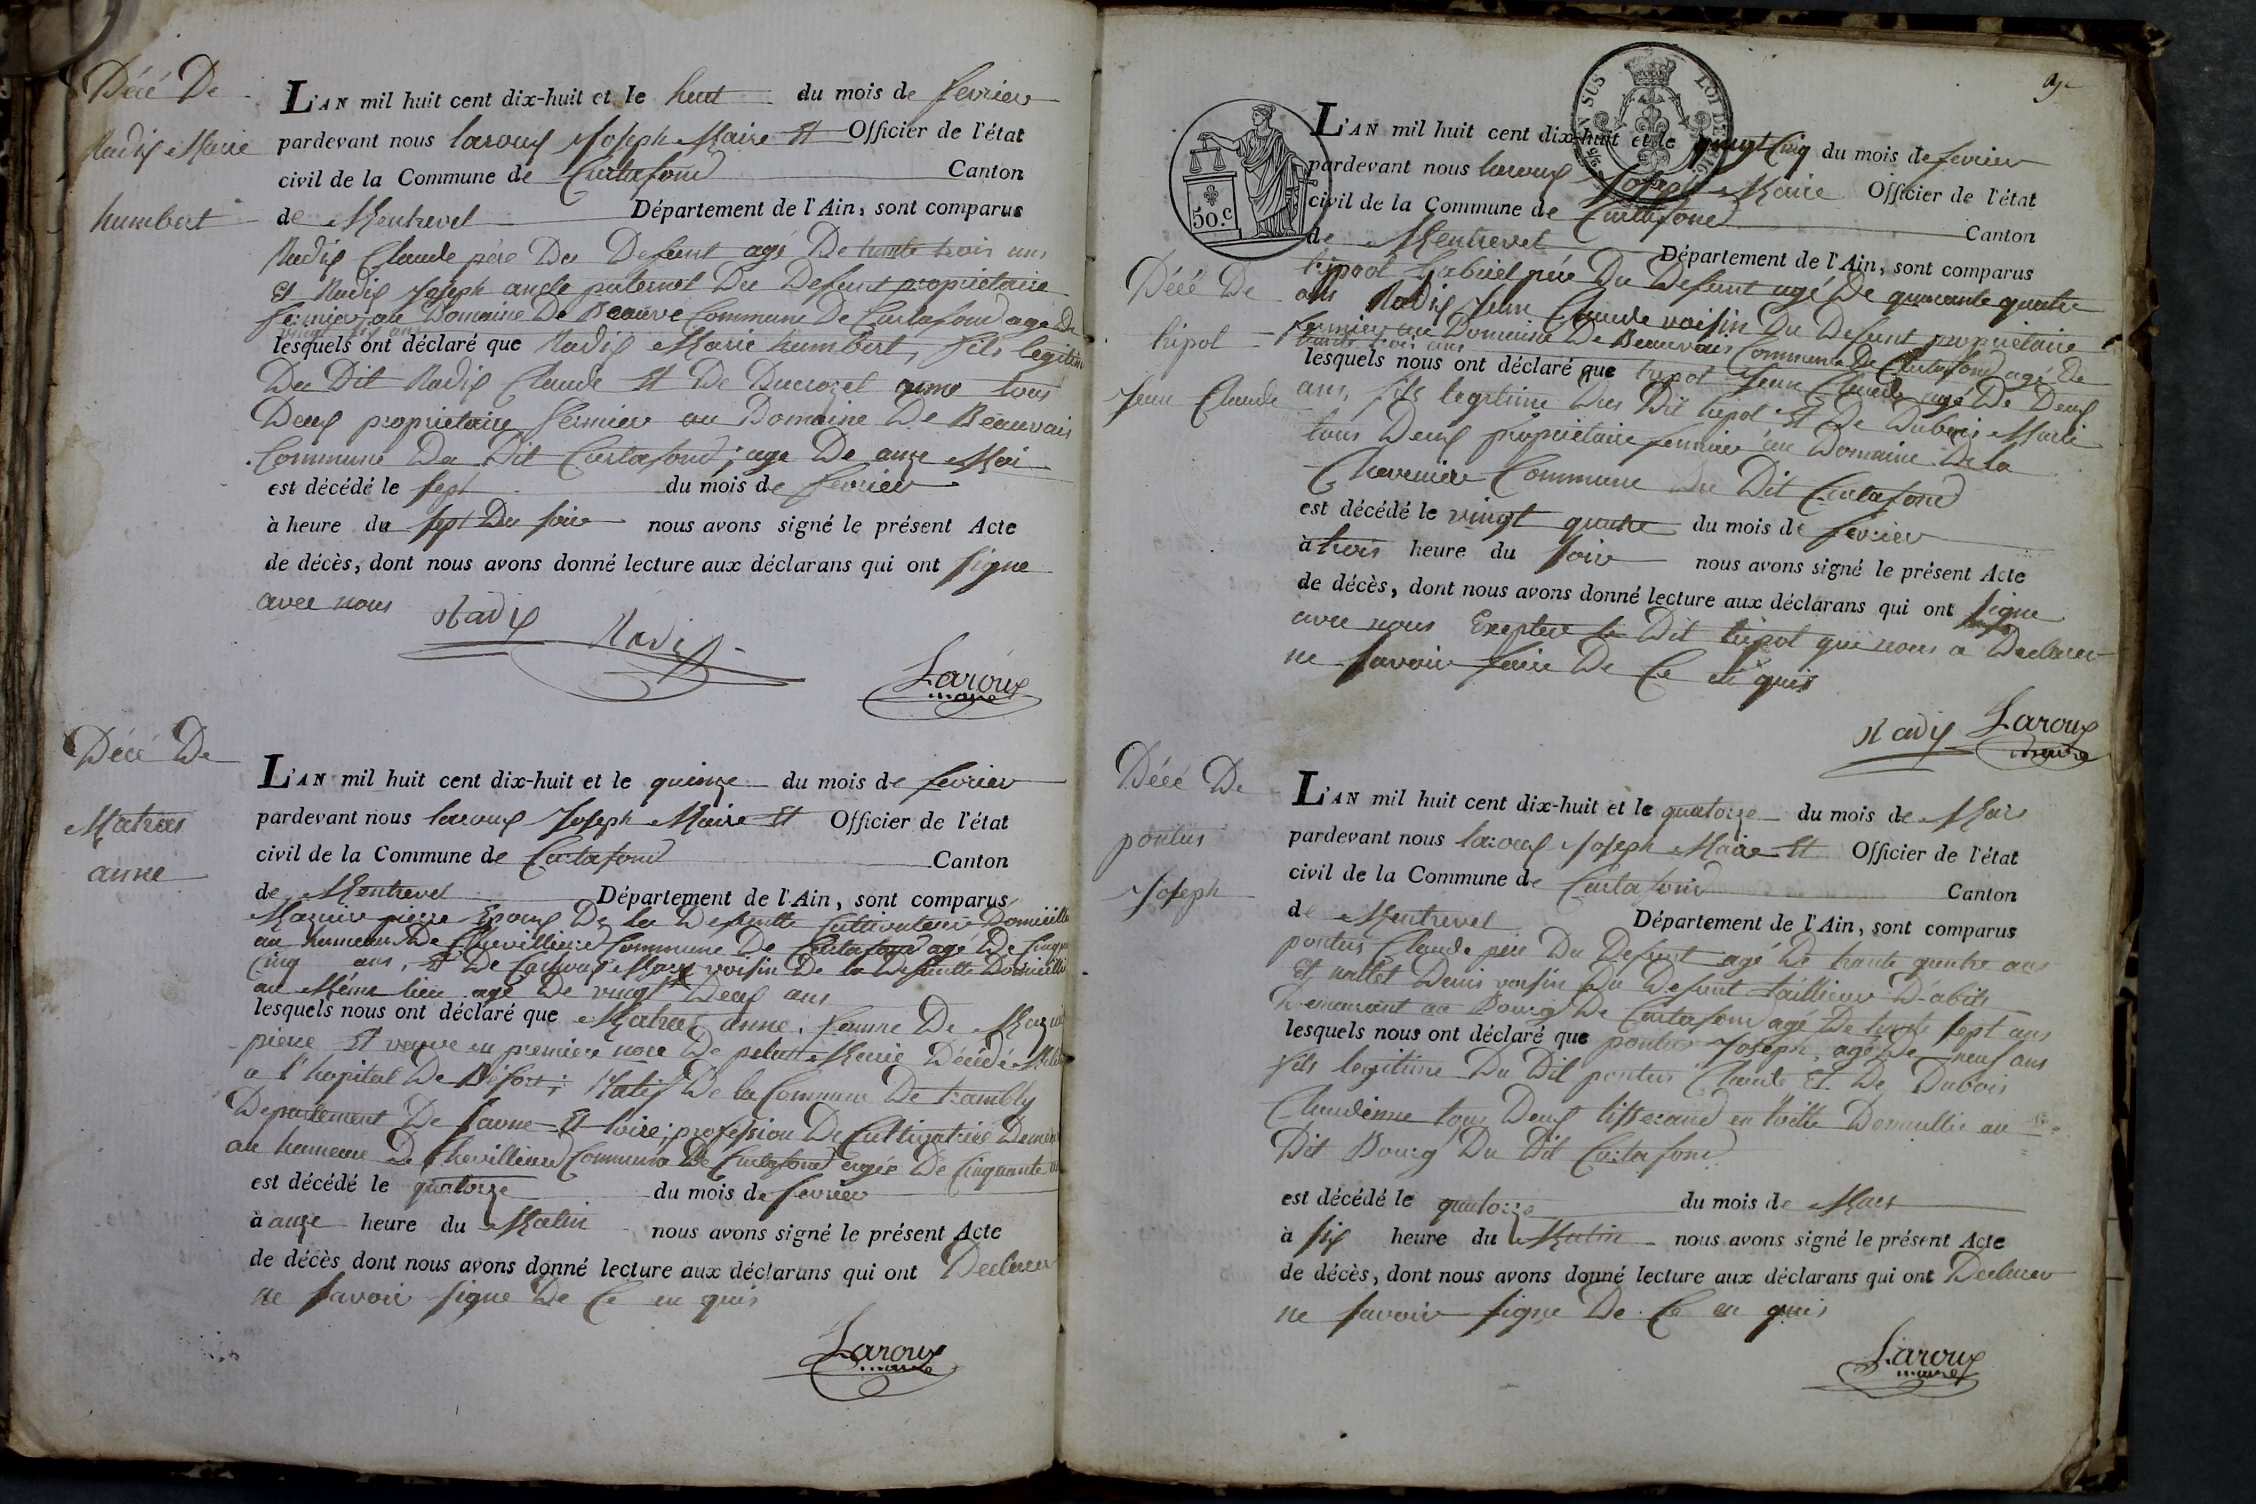 Décé De
Nadix Marie
humbert
L'AN mil huit cent dix-huit et le huit du mois de fevrier
pardevant nous laroux Joseph Maire Et Officier de l'état
civil de la Commune de Curtafond Canton
de Montrevel Département de l'Ain, sont comparus
Nadix Claude père Du Defunt agé De trente trois ans
Et Nadix Joseph oncle paternel Du Defunt propriétaire
fermier au Domaine De Beauve Commune De Curtafond agé De
vingt six ans
lesquels ont déclaré que Nadix Marie humbert, fils legitime
Du Dit Nadix Claude Et De anne tous
Deux propriétaire fermier au Domaine De Beauvais
Commune Du Dit Curtafond, age De onze Moi
est décédé le sept du mois de fevrier
à heure du sept Du soir nous avons signé le présent Acte
de décès, dont nous avons donné lecture aux déclarans qui ont signe
avec nous
Nadix Nadix
Laroux
maire
Décé De
Matras
anne
L'AN mil huit cent dix-huit et le quinze du mois de fevrier
pardevant nous laroux Joseph Maire Et Officier de l'état
civil de la Commune de Curtafond Canton
de Montrevel Département de l'Ain, sont comparus
Mazuir pierre Epoux De la Defuntte Cultivateur Domicillé
au hameau De Chevillieu Commune De Curtafond agé De Cinquante
Cinq ans, Et De voisin De la Defuntte Domicillié
au Même lieu agé De vingt Deux ans
lesquels nous ont déclaré que Matras anne, femme De Mazuir
pierre Et veuve en premiere noce De Marie Décédé
a l'hopital De Béfort; Natif De la Commune De trambly
Departement De Saone Et loire, profession De Cultivatrice
au hameau De Chevillieu Commune De Curtafond agée De Cinquante
est décédé le quatorze du mois de fevrier
à onze heure du Matin nous avons signé le présent Acte
de décès dont nous avons donné lecture aux déclarans qui ont Declarer
ne savoir signe De Ce en quis
Laroux
maire
50.C
SUS
LOI DE
L'AN mil huit cent dix-huit et le vingt Cinq du mois de fevrier
pardevant nous laroux Joseph Maire Officier de l'état
civil de la Commune de Curtafond Canton
de Montrevel Département de l'Ain, sont comparus
Décé De
tripol
Jean Claude
tripol Gabriel père Du Defunt agé De quarante quatre
ans Nadix Jean Claude voisin Du Defunt propriétaire
fermier au Domaine De Beauvais Commune De Curtafond agé De
trente trois ans
lesquels nous ont déclaré que tripol Jean Claude agé De Deux
ans, fils legitime Du Dit tripol Et De Dubois Marie
tous Deux propriétaire fermier au Domaine De la
Commune Du Dit Curtafond
est décédé le vingt quatre du mois de fevrier
à trois heure du soir nous avons signé le présent Acte
de décès, dont nous avons donné lecture aux déclarans qui ont signe
avec nous Exeptee le Dit tripol qui nous a Declarer
ne savoir faire De Ce en quis
Nadix Laroux
maire
Décé De
pontus
Joseph
L'AN mil huit cent dix-huit et le quatorze du mois de Mars
pardevant nous laroux Joseph Maire Et Officier de l'état
civil de la Commune de Curtafond Canton
de Montrevel Département de l'Ain, sont comparus
pontus Claude père Du Defunt agé De trante quatre ans
Et nallet Denis voisin Du Defunt taillieur D'abits
Demeurant au Bourg De Curtafond agé De trente sept ans
lesquels nous ont déclaré que pontus Joseph, agé De neuf ans
fils legitime Du Dit pontus Claude Et De Dubois
Claudinne tous Deux tisserand en toille Domicillié au
Dit Bourg Du Dit Curtafond
est décédé le quatorze du mois de Mars
à six heure du Matin nous avons signé le présent Acte
de décès, dont nous avons donné lecture aux déclarans qui ont Declarer
ne savoir signe De Ce en quis
Laroux
maire